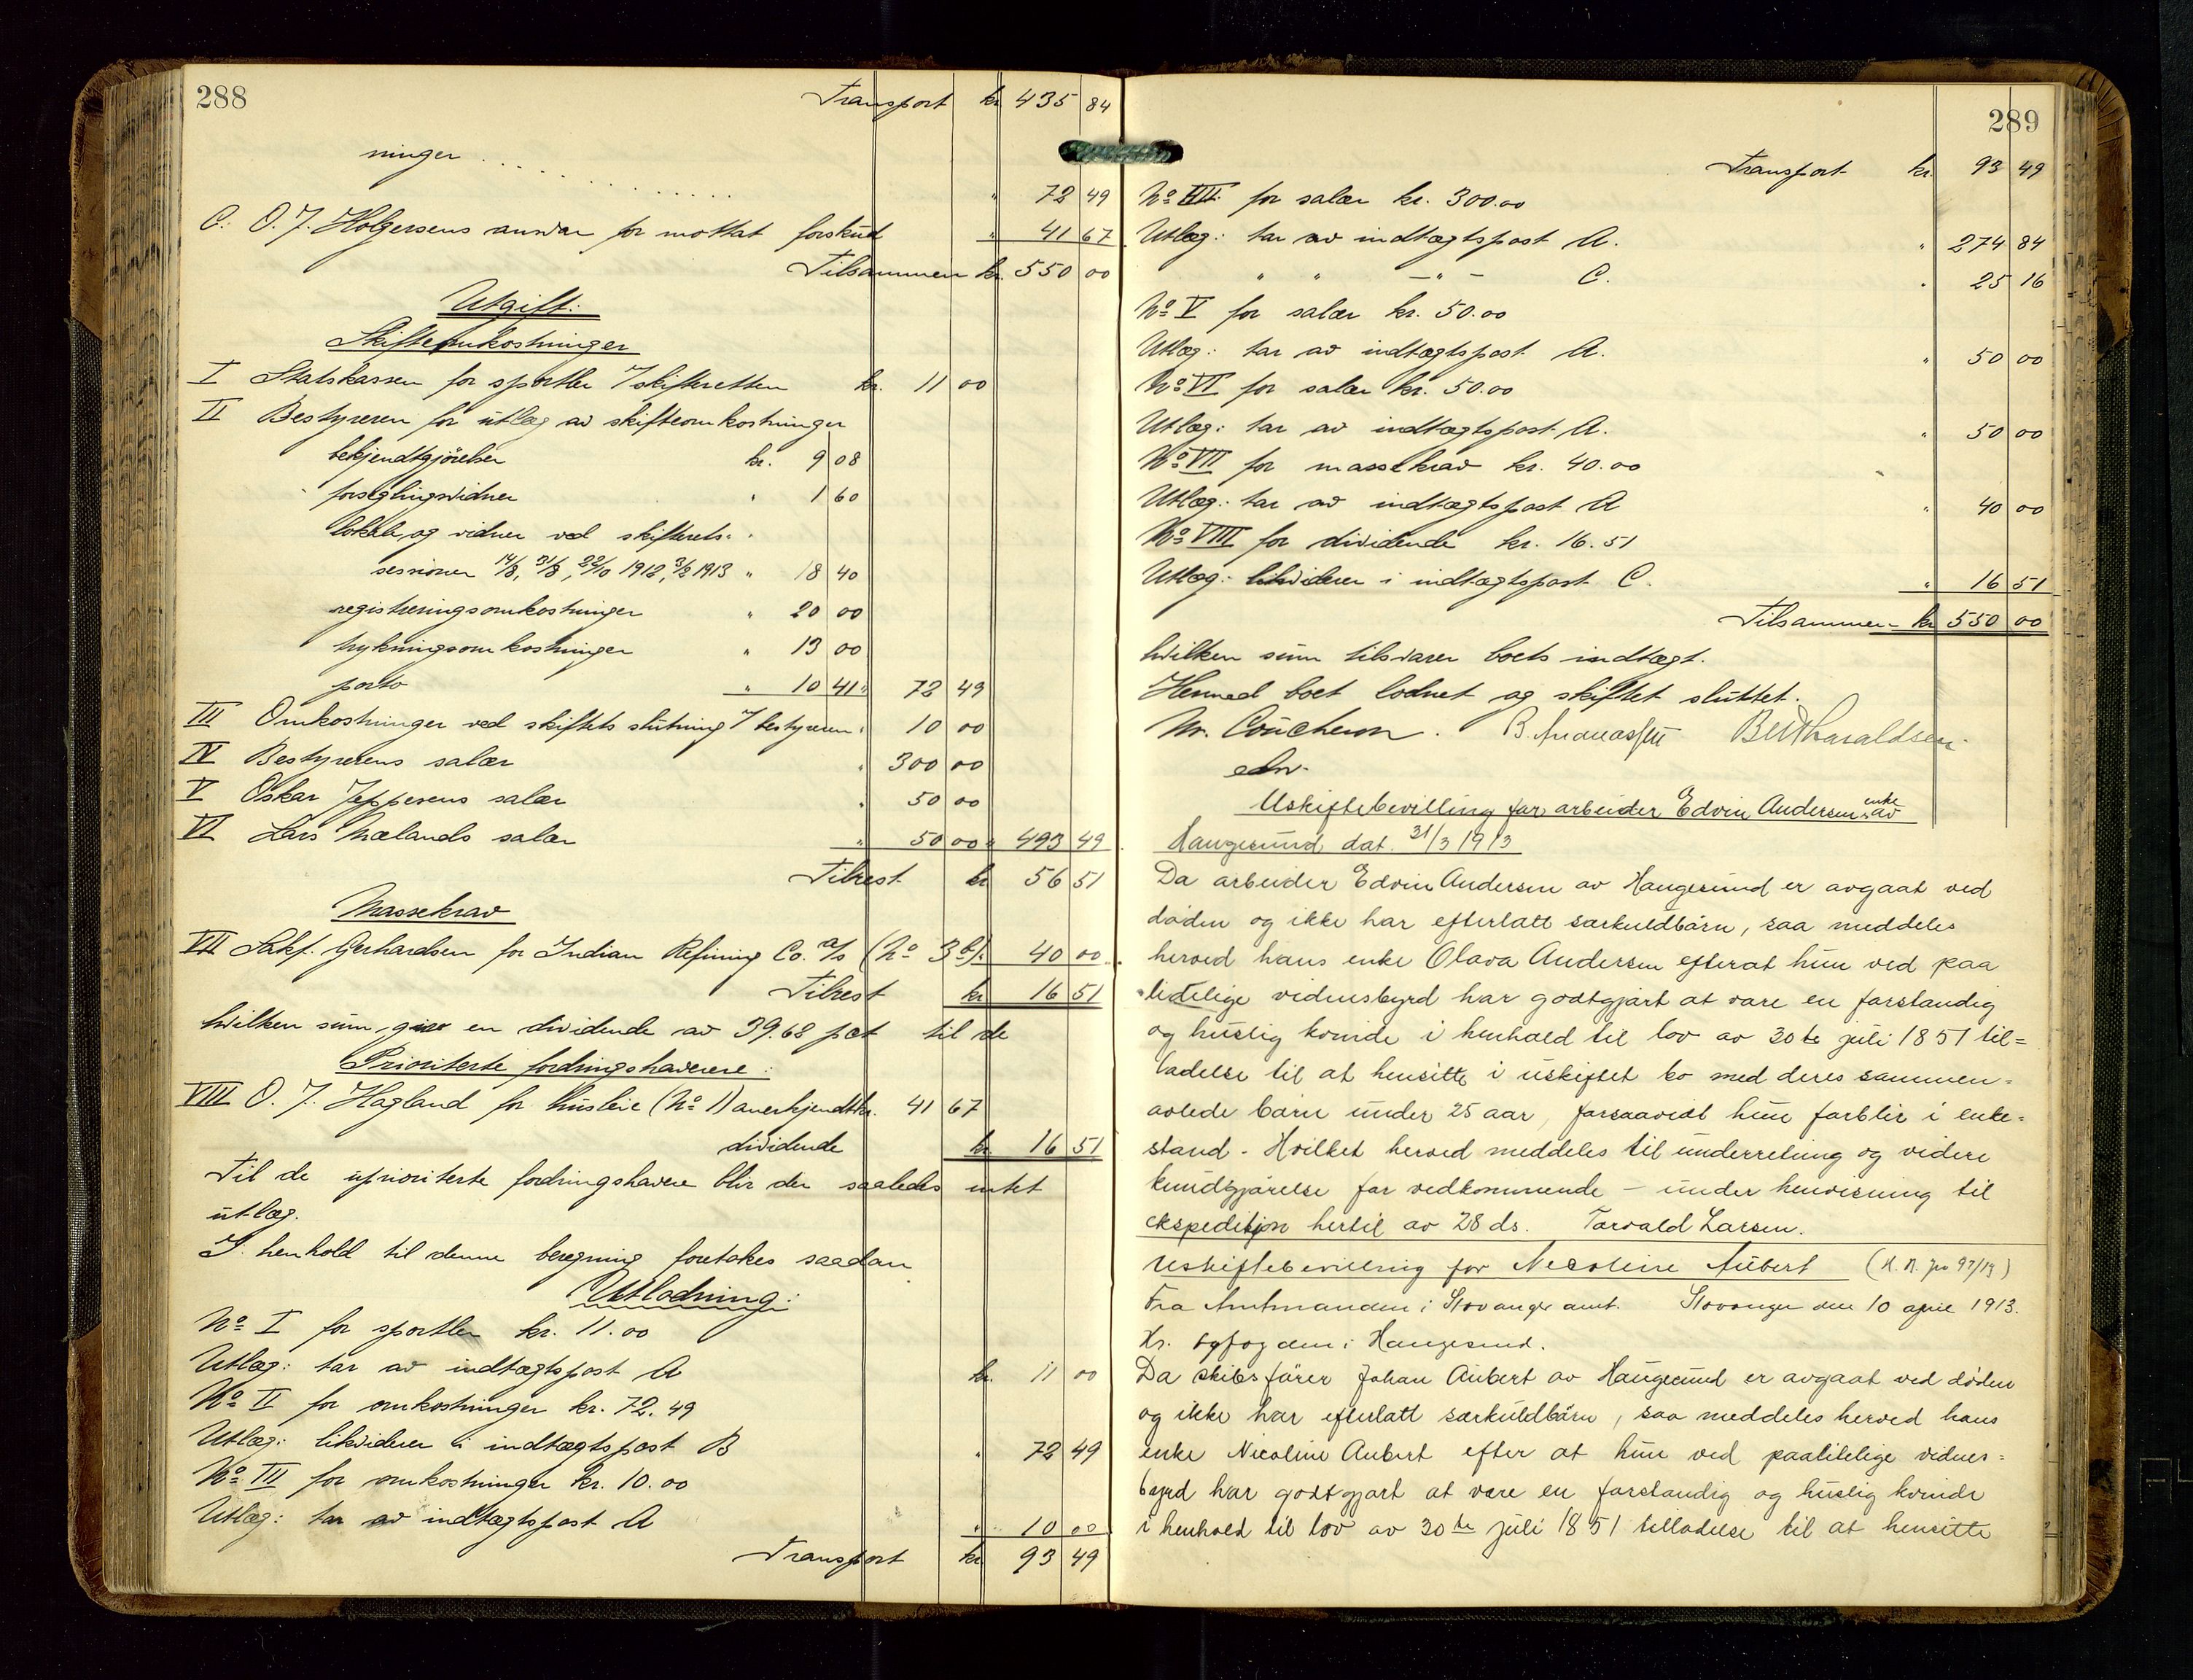 288
Transport kr 435 84
ninger . . . " 72 49
C. O. J. Holgersens ansvar for mottat forskud " 41 67
Tilsammen kr. 550 00
Utgift:
Skifteomkostninger
I Statskassen for sportler / skifteretten kr. 11 00
II Bestyreren for utlæg av skifteomkostninger
bekjendtgjörelser kr. 9 08
forseglingsvidner " 1 60
lokale og vidner ved skifterets-
sessioner 14/8, 31/8, 22/10 1912, 3/2 1913 " 18 40
registreringsomkostninger " 20 00
trykningsomkostninger " 13 00
porto " 10 41 " 72 49
III Omkostninger ved skiftets slutning / bestyreren " 10 00
IV Bestyrerens salær " 300 00
V Oskar Jeppesens salær " 50 00
VI Lars Mælands salær " 50 00 " 493 49
Tilrest kr 56 51
Massekrav
VII Sakf. Gerhardsen for Indian Refining Co. a/s (No 3 b) " 40 00
Tilrest kr 16 51
hvilken sum giver en dividende av 39.68 pct til de
Prioriterte fordringshavere:
VIII O. J. Hagland for husleie (No 1) anerkjendt kr. 41 67
dividende kr 16 51
Til de uprioriterte fordringshavere blir der saaledes intet
utlæg.
I henhold til denne beregning foretakes saadan
Utlodning:
No I for sportler kr. 11.00
Utlæg: tar av indtægtspost A kr. 11 00
No II for omkostninger kr. 72.49
Utlæg: likviderer i indtægtspost B " 72 49
No III for omkostninger kr. 10.00
Utlæg: tar av indtægtspost A " 10 00
Transport kr 93 49
289
Transport kr. 93 49
No IIII for salær kr. 300.00
Utlæg: tar av indtægtspost A. " 274 84
" " — " — C. " 25 16
No V for salær kr. 50.00
Utlæg: tar av indtægtspost A. " 50 00
No VI for salær kr. 50.00
Utlæg: tar av indtægtspost A. " 50 00
No VII for massekrav kr. 40.00
Utlæg: tar av indtægtspost A " 40 00
No VIII for dividende kr. 16.51
Utlæg: likviderer i indtægtspost C. " 16 51
Tilsammen kr 550 00
hvilken sum tilsvarer boets indtægt.
Hermed boet lodnet og skiftet sluttet.
M. Coucheron. B. Andreassen B Haraldsen
Uskiftebevilling for arbeider Edvin Andersens enke av
Haugesund dat. 31/3 1913
Da arbeider Edvin Andersen av Haugesund er avgaat ved
döden og ikke har efterlatt særkuldbörn, saa meddeles
herved hans enke Olava Andersen efterat hun ved paa
litelige vidnesbyrd har godtgjort at være en forstandig
og huslig kvinde i henhold til lov av 30te juli 1851 til=
ladelse til at hensitte i uskiftet bo med deres sammen=
avlede börn under 25 aar, forsaavidt hun forblir i enke=
stand. Hvilket herved meddeles til underretning og videre
kundgjörelse for vedkommende – under henvisning til
ekspedisjon hertil av 28 ds. Torvald Larsen.
Uskiftebevilling for Nicoline Aubert (H. A. jr 97/13)
Fra Amtmanden i Stavanger amt. Stavanger den 10 april 1913.
Hr. byfogden i Haugesund.
Da skibsförer Johan Aubert av Haugesund er avgaat ved döden
og ikke har efterlatt særkuldbörn, saa meddeles herved hans
enke Nicoline Aubert efter at hun ved paalitelige vidnes=
byrd har godtgjort at være en forstandig og huslig kvinde
i henhold til lov av 30te juli 1851 tilladelse til at hensitte